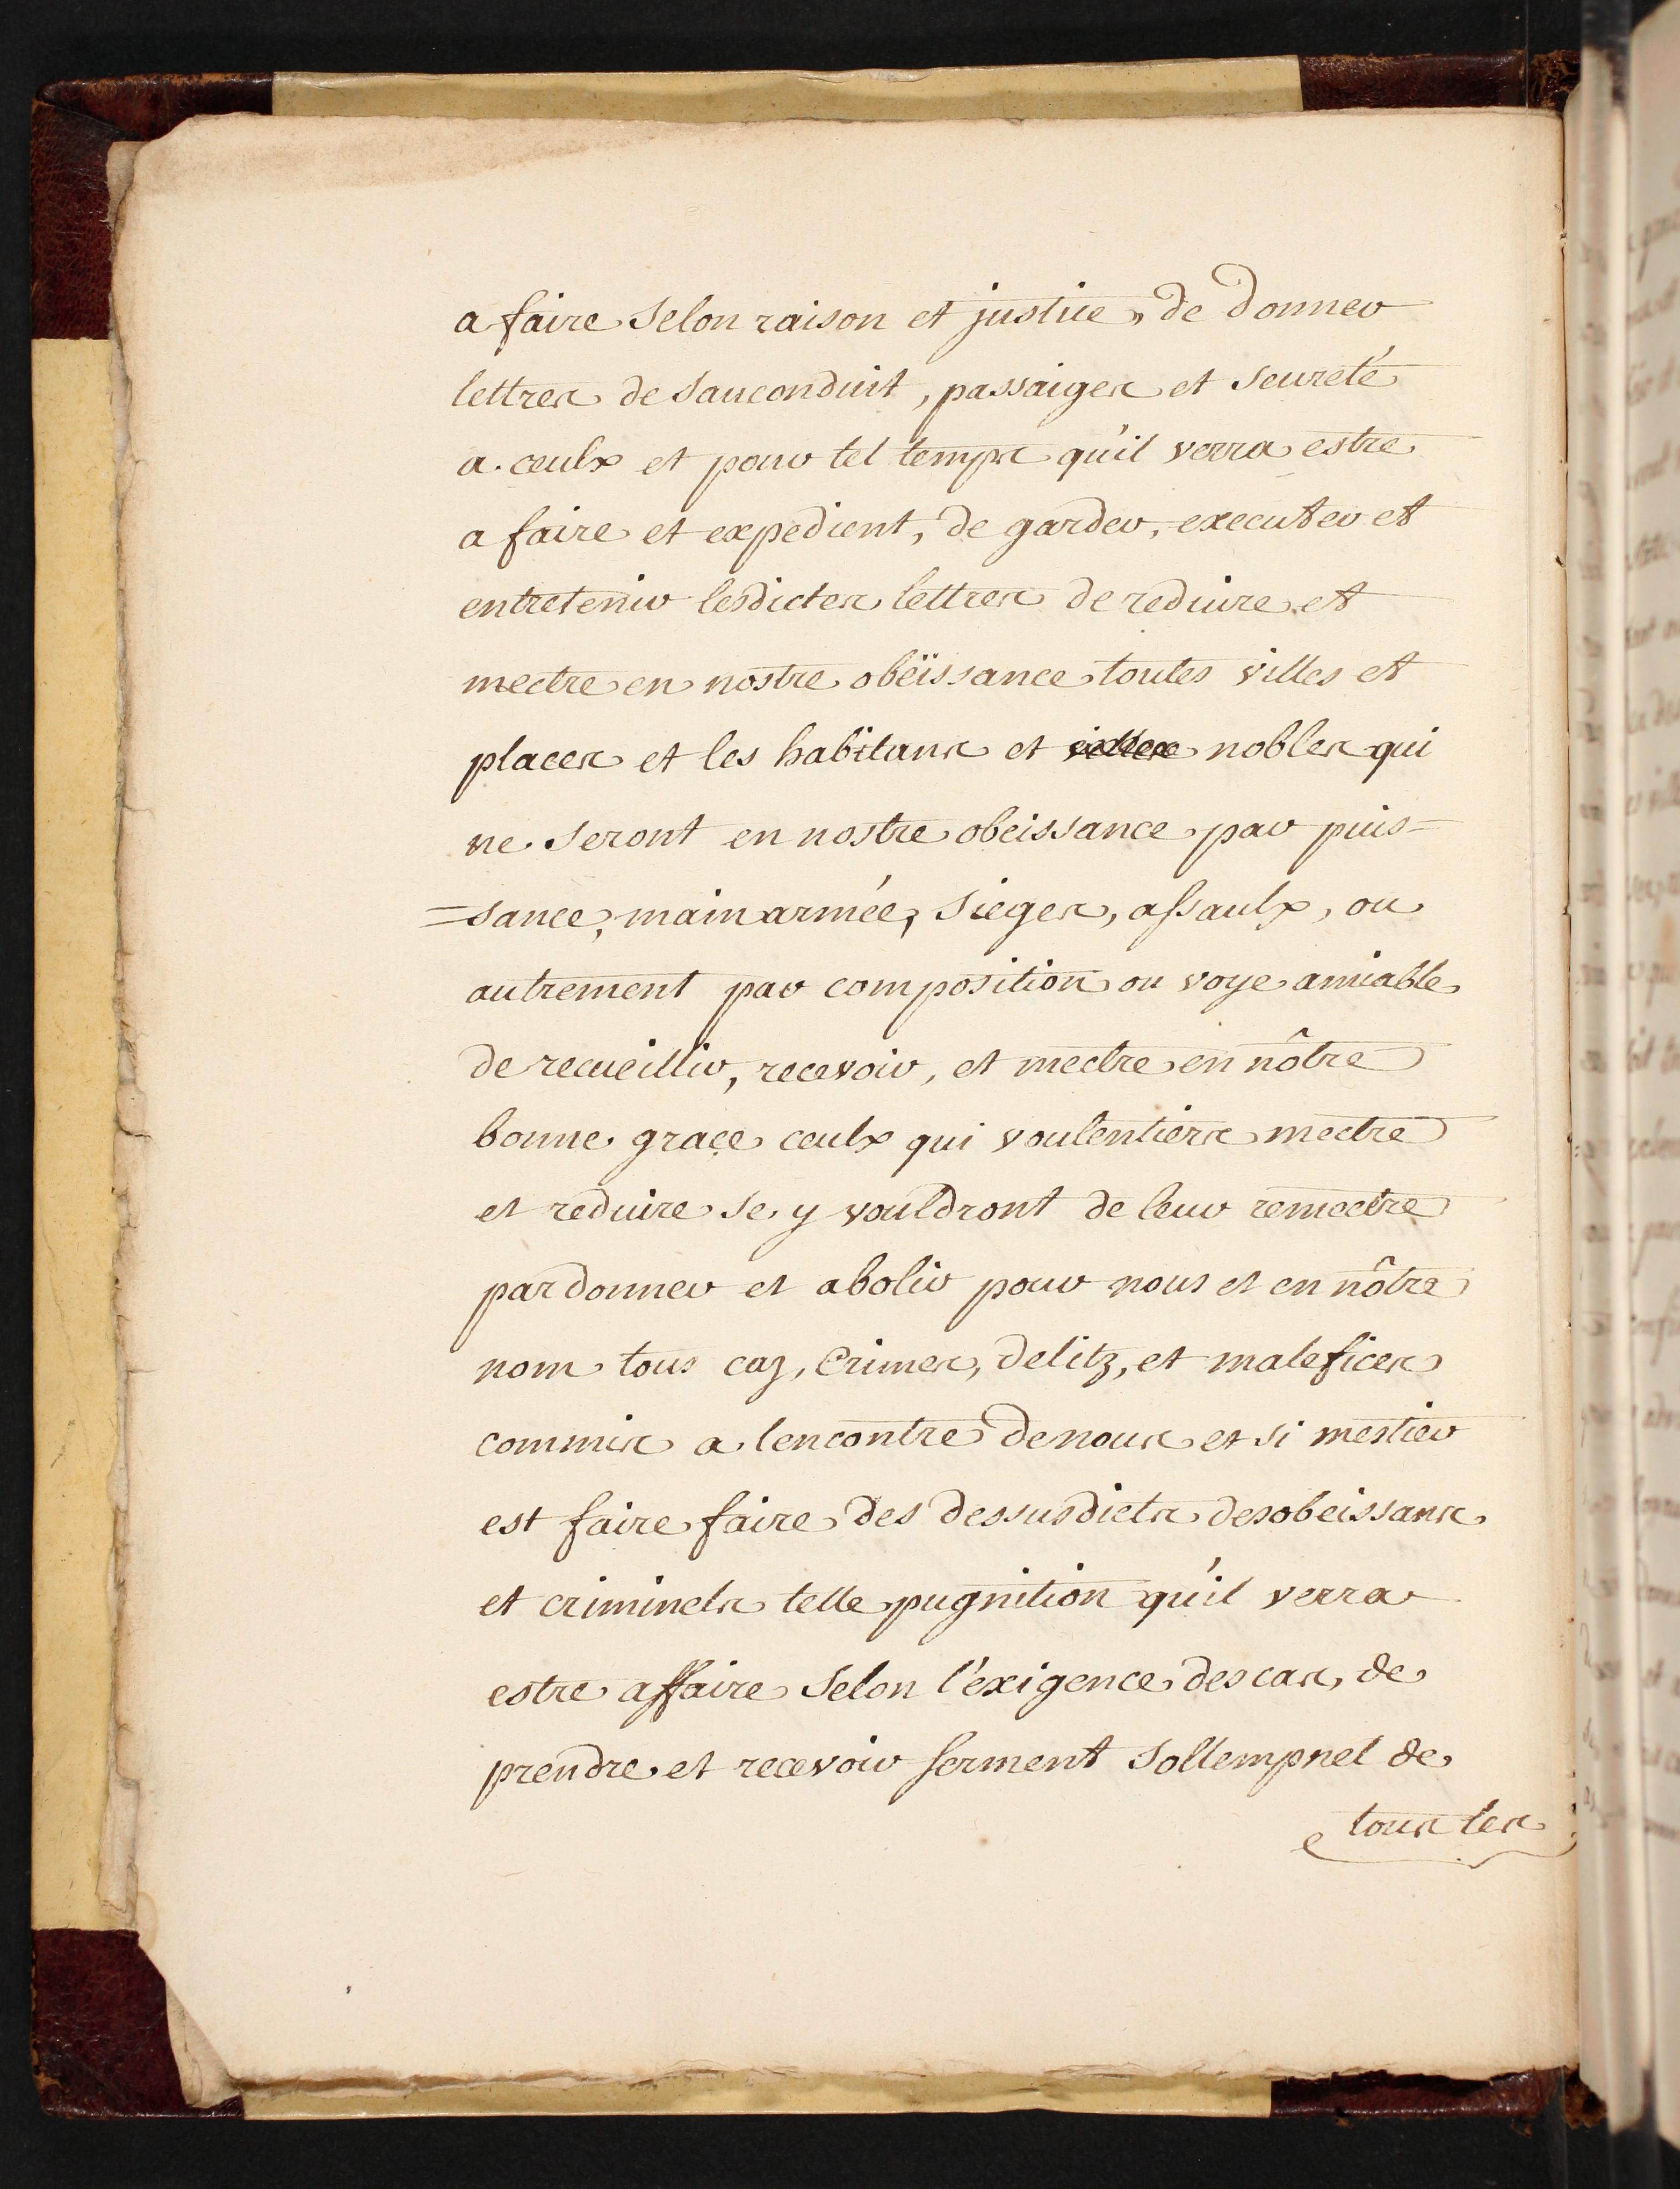 a faire selon raison et justice, de donner
lettres de sauconduit, passaiges et seureté
a ceulx et pour tel temps qu'il verra estre
a faire et expedient, de garder, executer et
entretenir lesdictes lettres de reduire et
mectre en nostre obëissance toutes villes et
places et les habitans et nobles qui
ne seront en nostre obeissance par puis=
=sance, main armée, sieges, assaulx, ou
autrement par composition ou voye amiable
de recueillir, recevoir, et mectre en nôtre
bonne grace ceulx qui voulentiers mectre
et reduire se y vouldront de leur remectre
pardonner et abolir pour nous et en nôtre
nom tous caz, Crimes, delitz, et malefices
commis a lencontre de nous et si mestier
est faire faire des dessusdicts desobeissans
et criminels telle pugnition qu'il verra
estre affaire selon l'exigence des cas, de
prendre et recevoir serment sollempnel de
tous les